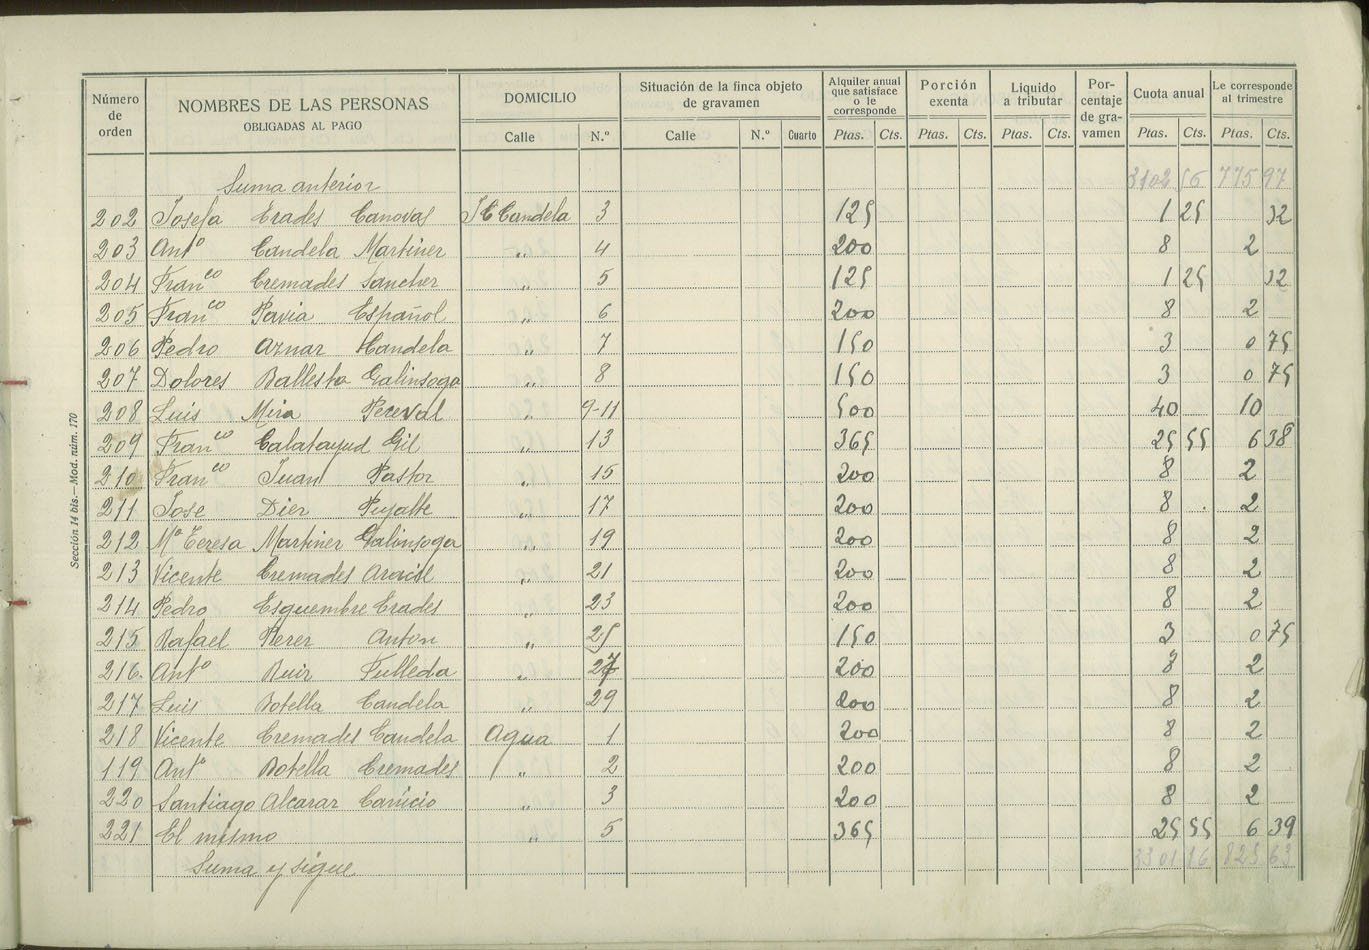 Número de orden | NOMBRES DE LAS PERSONAS OBLIGADAS AL PAGO | DOMICILIO | Situación de la finca objeto de gravamen | Alquiler anual que satisface o le corresponde | Porción exenta | Liquido a tributar | Porcentaje de gravamen | Cuota anual | Le corresponde al trimestre
Calle | N.º | Calle | N.º | Cuarto | Ptas. | Cts. | Ptas. | Cts. | Ptas. | Cts. | Ptas. | Cts. | Ptas. | Cts.
Suma anterior 3102 56 775 97
202 Josefa Erades Canovas J C Candela 3 125 1 25 32
203 Antº Candela Martinez " 4 200 8 2
204 Franco Cremades Sanchez " 5 125 1 25 32
205 Franco Pavia Español " 6 200 8 2
206 Pedro Aznar Candela " 7 150 3 0 75
207 Dolores Ballesta Galinsoga " 8 150 3 0 75
208 Luis Mira Perceval " 9-11 500 40 10
209 Franco Calatayud Gil " 13 365 25 55 6 38
210 Franco Juan Pastor " 15 200 8 2
211 Jose Diez Pujalte " 17 200 8 2
212 Mª Teresa Martinez Galinsoga " 19 200 8 2
213 Vicente Cremades Aracil " 21 200 8 2
214 Pedro Esquembre Erades " 23 200 8 2
215 Rafael Perez Anton " 25 150 3 0 75
216 Antº Ruiz Fulleda " 27 200 8 2
217 Luis Botella Candela " 29 200 8 2
218 Vicente Cremades Candela Agua 1 200 8 2
119 Antº Botella Cremades " 2 200 8 2
220 Santiago Alcaraz Canicio " 3 200 8 2
221 El mismo " 5 365 25 55 6 39
Suma y sigue 3301 16 825 63
Sección 14 bis.—Mod. núm. 170